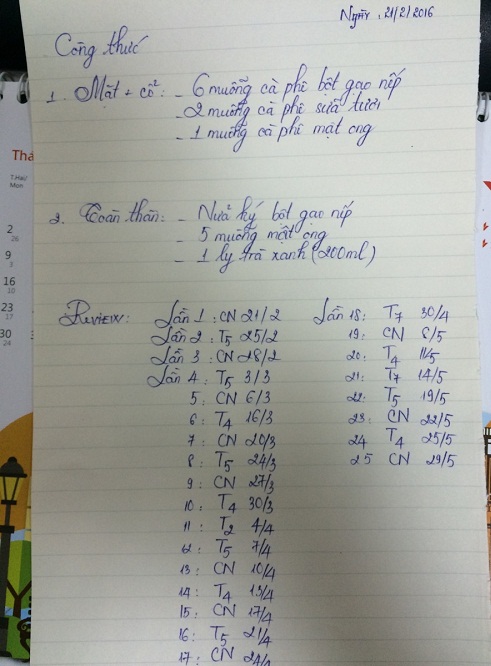 Ngày: 21/2/2016
Công thức
1. Mặt + cổ: - 6 muỗng cà phê bột gạo nếp
- 2 muỗng cà phê sữa tươi
- 1 muỗng cà phê mật ong
2. Toàn thân: - Nửa ký bột gạo nếp
- 5 muỗng mật ong
- 1 ly trà xanh (200ml)
REVIEW: Lần 1: CN 21/2
Lần 2: T5 25/2
Lần 3: CN 28/2
Lần 4: T5 3/3
5: CN 6/3
6: T4 16/3
7: CN 20/3
8: T5 24/3
9: CN 27/3
10: T4 30/3
11: T2 4/4
12: T5 7/4
13: CN 10/4
14: T4 13/4
15: CN 17/4
16: T5 21/4
17: CN 24/4
Lần 18: T7 30/4
19: CN 8/5
20: T4 11/5
21: T7 14/5
22: T5 19/5
23: CN 22/5
24 T4 25/5
25 CN 29/5
Thá
2
9
16
23
30